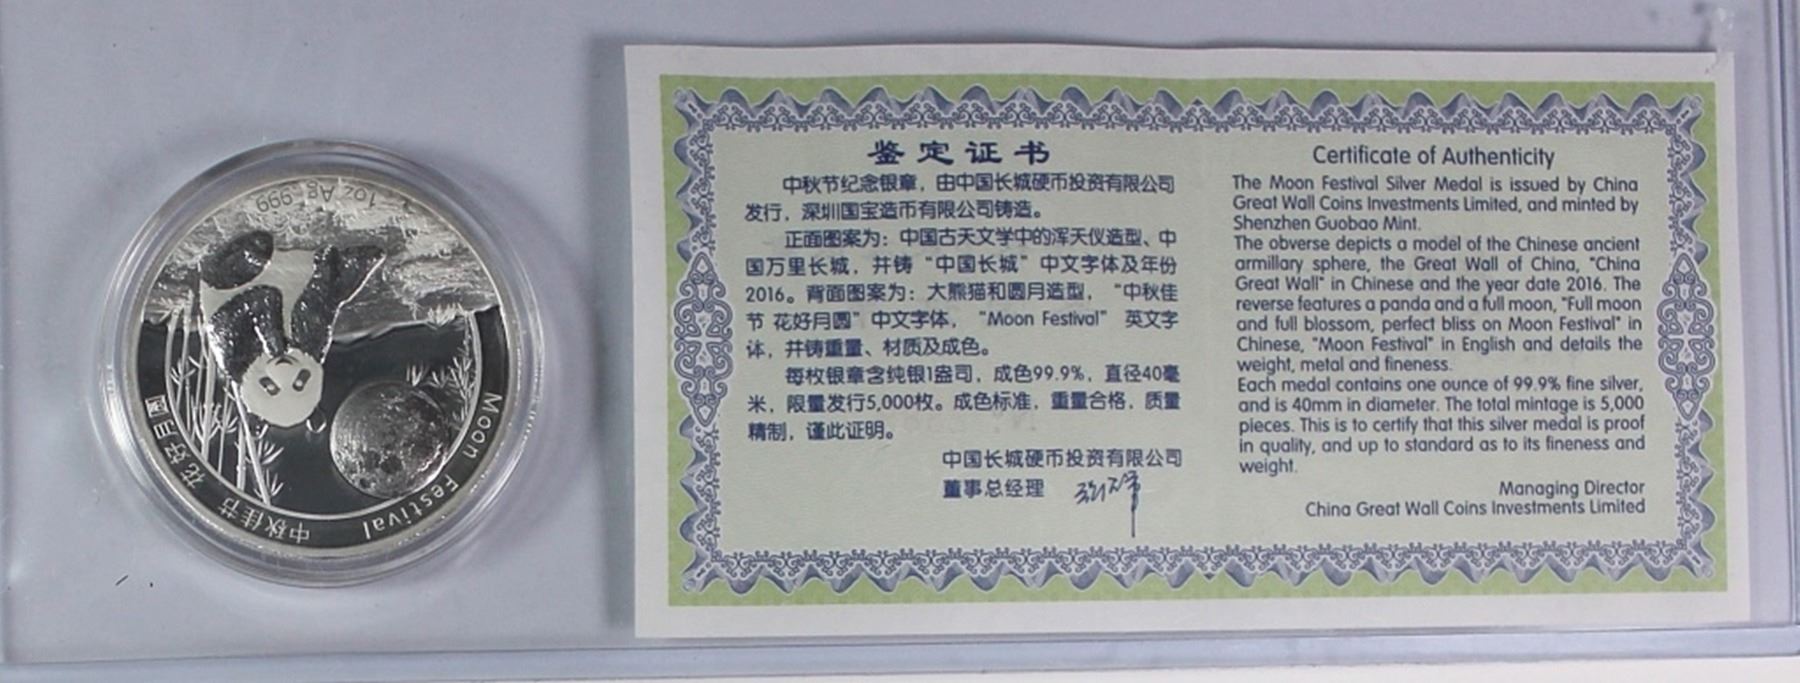 1oz Ag .999
中秋佳节 花好月圆
Moon Festival
鉴定证书
中秋节纪念银章，由中国长城硬币投资有限公司
发行，深圳国宝造币有限公司铸造。
正面图案为：中国古天文学中的浑天仪造型、中
国万里长城，并铸“中国长城”中文字体及年份
2016。背面图案为：大熊猫和圆月造型，“中秋佳
节 花好月圆”中文字体，“Moon Festival” 英文字
体，并铸重量、材质及成色。
每枚银章含纯银1盎司，成色99.9%，直径40毫
米，限量发行5,000枚。成色标准，重量合格，质量
精制，谨此证明。
中国长城硬币投资有限公司
董事总经理
Certificate of Authenticity
The Moon Festival Silver Medal is issued by China
Great Wall Coins Investments Limited, and minted by
Shenzhen Guobao Mint.
The obverse depicts a model of the Chinese ancient
armillary sphere, the Great Wall of China, "China
Great Wall" in Chinese and the year date 2016. The
reverse features a panda and a full moon, "Full moon
and full blossom, perfect bliss on Moon Festival" in
Chinese, "Moon Festival" in English and details the
weight, metal and fineness.
Each medal contains one ounce of 99.9% fine silver,
and is 40mm in diameter. The total mintage is 5,000
pieces. This is to certify that this silver medal is proof
in quality, and up to standard as to its fineness and
weight.
Managing Director
China Great Wall Coins Investments Limited